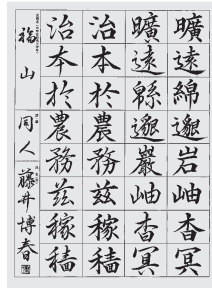 曠遠綿邈岩岫杳冥
曠遠緜邈巖岫杳冥
治本於農務茲稼穡
治本於農務茲稼穡
福山 同人 藤井博春